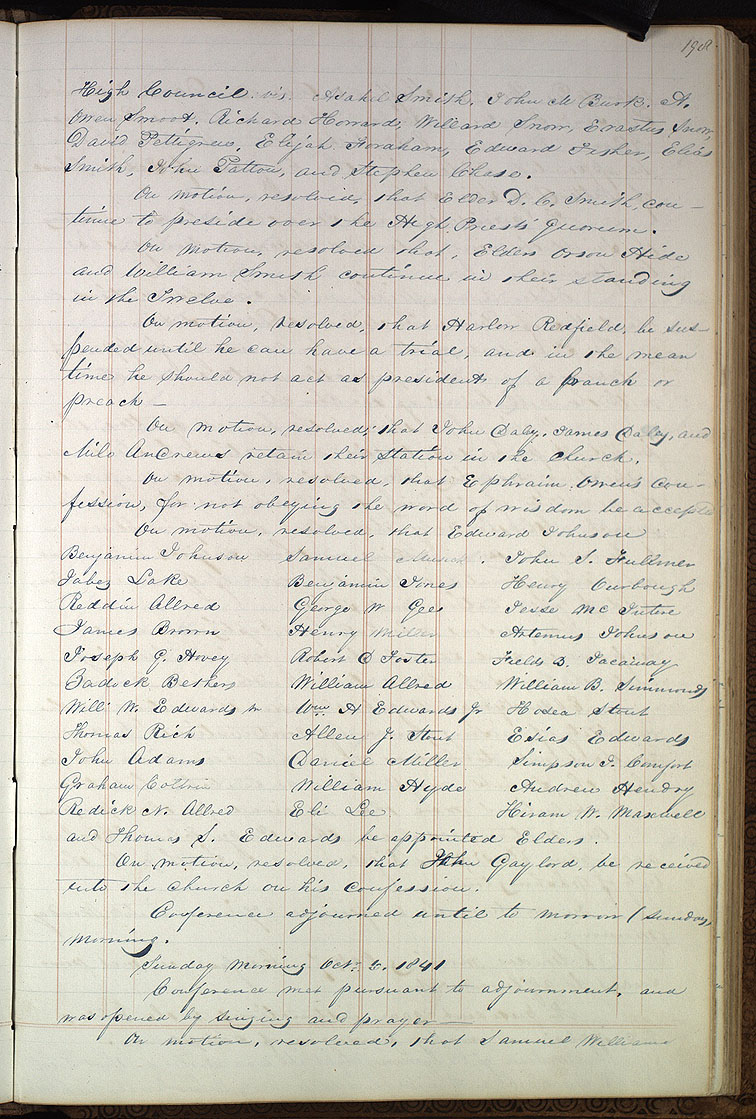 198
High Council. viz. Asahel Smith, John M Burk. A.
Owen Smoot. Richard Howard, Willard Snow, Erastus Snow,
David Pettigrew, Elijah Foraham, Edward Fisher, Elias
Smith, John Patton, and Stephen Chase.
On motion, resolved, that Elder D. C. Smith, con-
tinue to preside over the High Priests Quorum.
On motion, resolved that, Elders Orson Hide
and William Smith continue in their standing
in the Twelve.
On motion, resolved, that Harlow Redfield, be sus-
pended until he can have a trial, and in the mean
time he should not act as president of a branch or
preach —
On motion, resolved, that John Daly, James Daley, and
Milo Andrews retain their station in the church.
On motion, resolved, that Ephraim Owen's con-
fession, for not obeying the word of wisdom be accepted
On motion, resolved, that Edward Johnson
Benjamin Johnson Samuel John S. Fullmer
Jabez Lake Benjamin Jones Henry Ourbough
Reddin Allred George W Gee Jesse Mc Intire
James Brown Henry Miller Artemus Johnson
Joseph G. Hovey Robert D Foster Fields B. Jacaway
Zadock Bethers William Allred William B. Simmonds
Will. W. Edwards sr Wm A Edwards Jr Hosea Stout
Thomas Rich Allen J. Stout Esias Edwards
John Adams Daniel Miller Simpson J. Comfort
Graham Coltrin William Hyde Andrew Hendry
Redick N. Allred Eli Lee Hiram W. Maxwell
and Thomas S. Edwards be appointed Elders.
On motion, resolved, that John Gaylord, be received
into the church on his confession.
Conference adjourned until to morrow (Sunday,
morning.
Sunday Morning Oct. 1841
Conference met pursuant to adjournment, and
was opened by singing and prayer —
On motion, resolved, that Samuel Williams